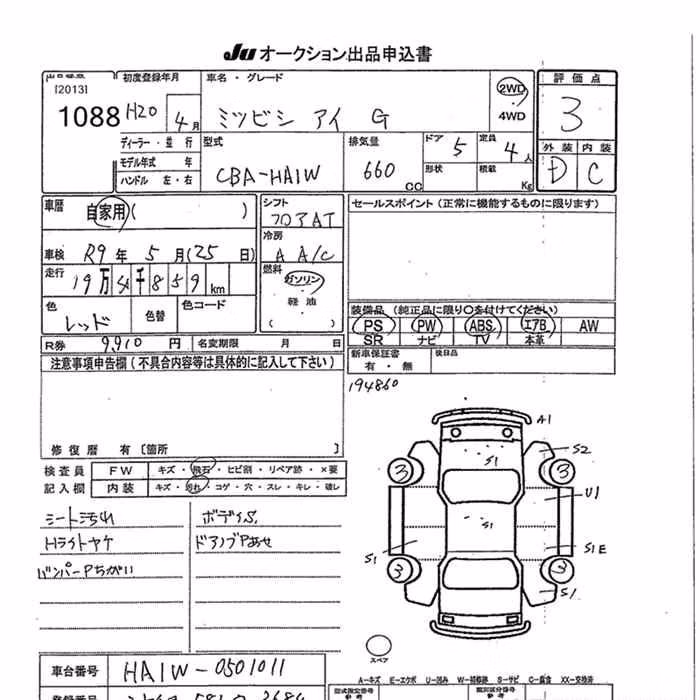 Ju オークション出品申込書
出品番号 初度登録年月 車名・グレード 評価点
[2013]
1088 H20 4月 ミツビシ アイ G 2WD 4WD 3
ディーラー・並行 型式 排気量 ドア 定員 外装 内装
モデル年式 年 CBA-HA1W 660cc 5 4人 D C
ハンドル 左・右 形状 積載 Kg
車歴 自家用( ) シフト セールスポイント(正常に機能するものに限ります)
フロアAT
冷房
車検 R9年 5月(25日) A A/C
走行 燃料
19万 4千 859 km ガソリン
軽油
色 色替 色コード ( )
レッド 装備品(純正品に限り○を付けてください)
PS PW ABS エアB AW
R券 9,910円 名変期限 月 日 SR ナビ TV 本革
注意事項申告欄(不具合内容等は具体的に記入して下さい) 新車保証書 後日品
有・無
194860
修復歴 有〔箇所 〕
検査員 FW キズ・飛石・ヒビ割・リペア跡・×要
記入欄 内装 キズ・汚れ・コゲ・穴・スレ・キレ・破レ
A1
S1 S2
3 3
U1
S1
S1 S1E
3 3
S1
シート汚れ ボディS,
Hライトヤケ ドアノブPあせ
バンパーPちがい
スペア
A…キズ E…エクボ U…凹み W…補修跡 S…サビ C…腐食 XX…交換済
車台番号 HA1W-0501011
型式指定番号 類別区分番号